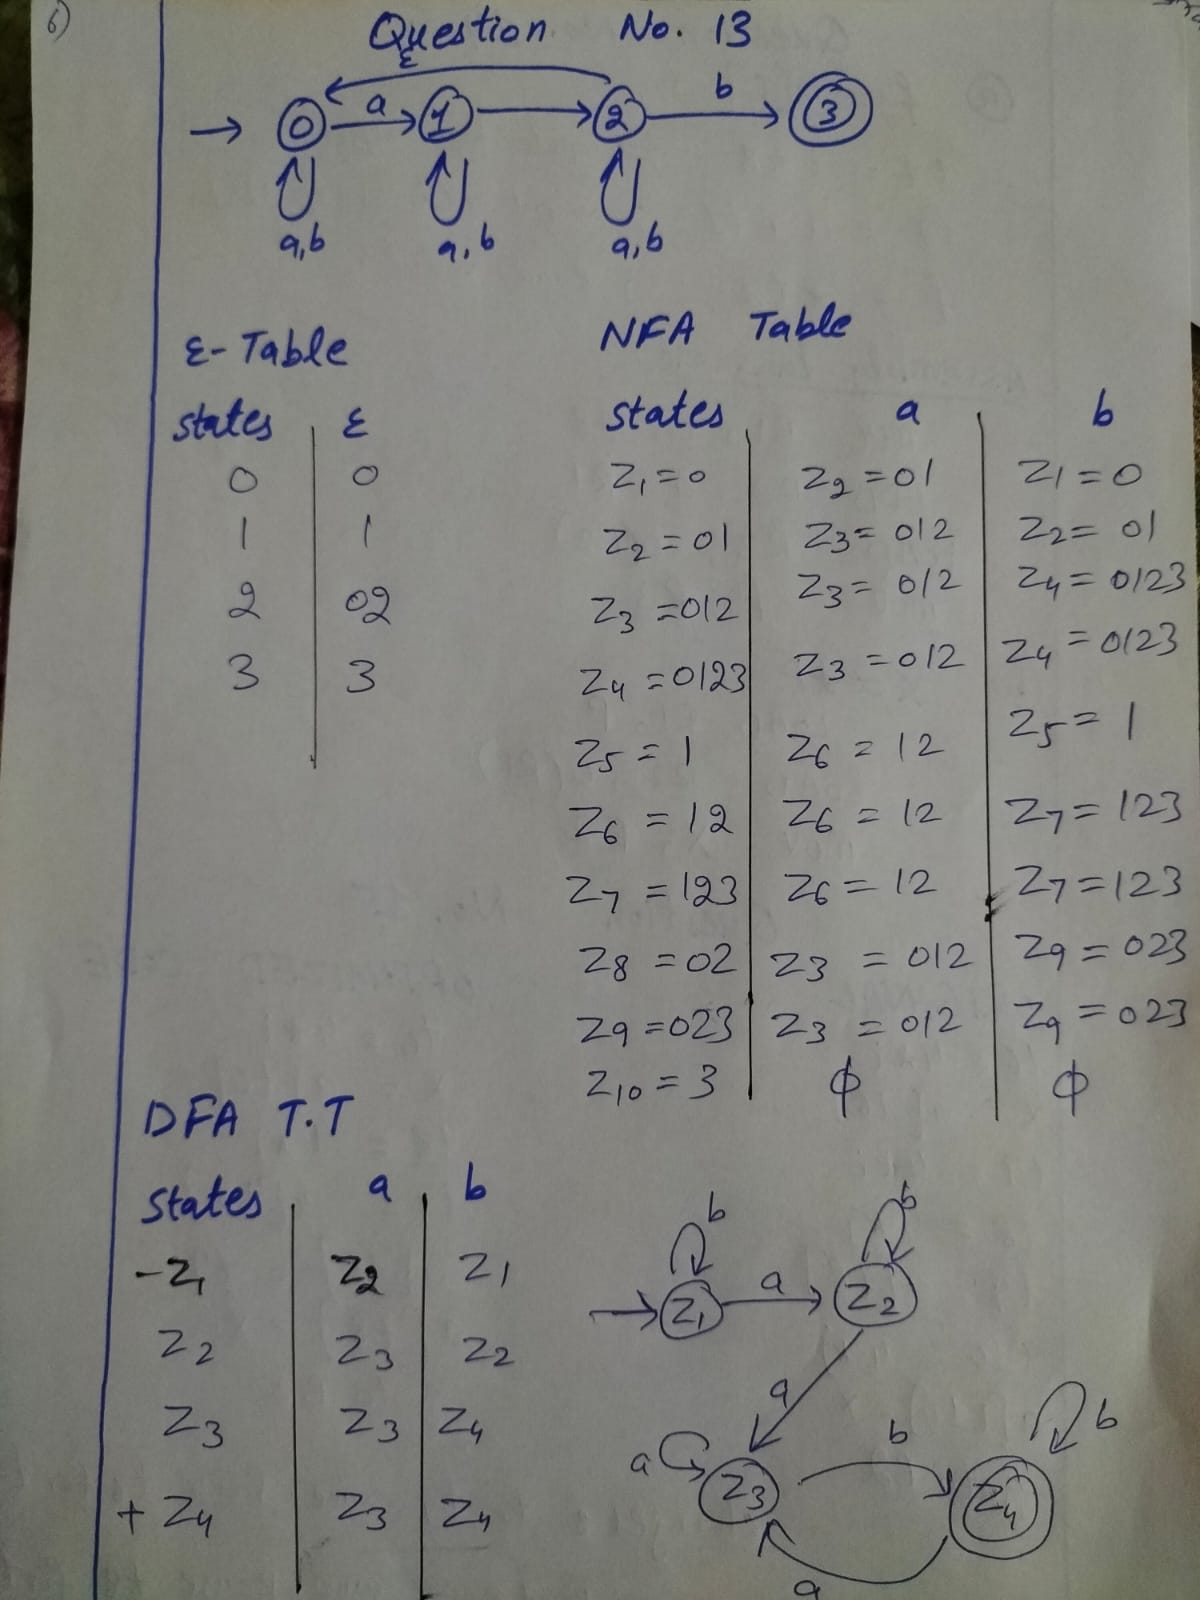 6)
Question No. 13
ε
→ 0 a 1 2 b 3
a,b a,b a,b
ε- Table
states ε
0 0
1 1
2 02
3 3
NFA Table
states a b
Z1 = 0 Z2 = 01 Z1 = 0
Z2 = 01 Z3 = 012 Z2 = 01
Z3 = 012 Z3 = 012 Z4 = 0123
Z4 = 0123 Z3 = 012 Z4 = 0123
Z5 = 1 Z6 = 12 Z5 = 1
Z6 = 12 Z6 = 12 Z7 = 123
Z7 = 123 Z6 = 12 Z7 = 123
Z8 = 02 Z3 = 012 Z9 = 023
Z9 = 023 Z3 = 012 Z9 = 023
Z10 = 3 ϕ ϕ
DFA T.T
States a b
-Z1 Z2 Z1
Z2 Z3 Z2
Z3 Z3 Z4
+ Z4 Z3 Z4
b b
Z1 a Z2
a
a Z3 b Z4 b
a